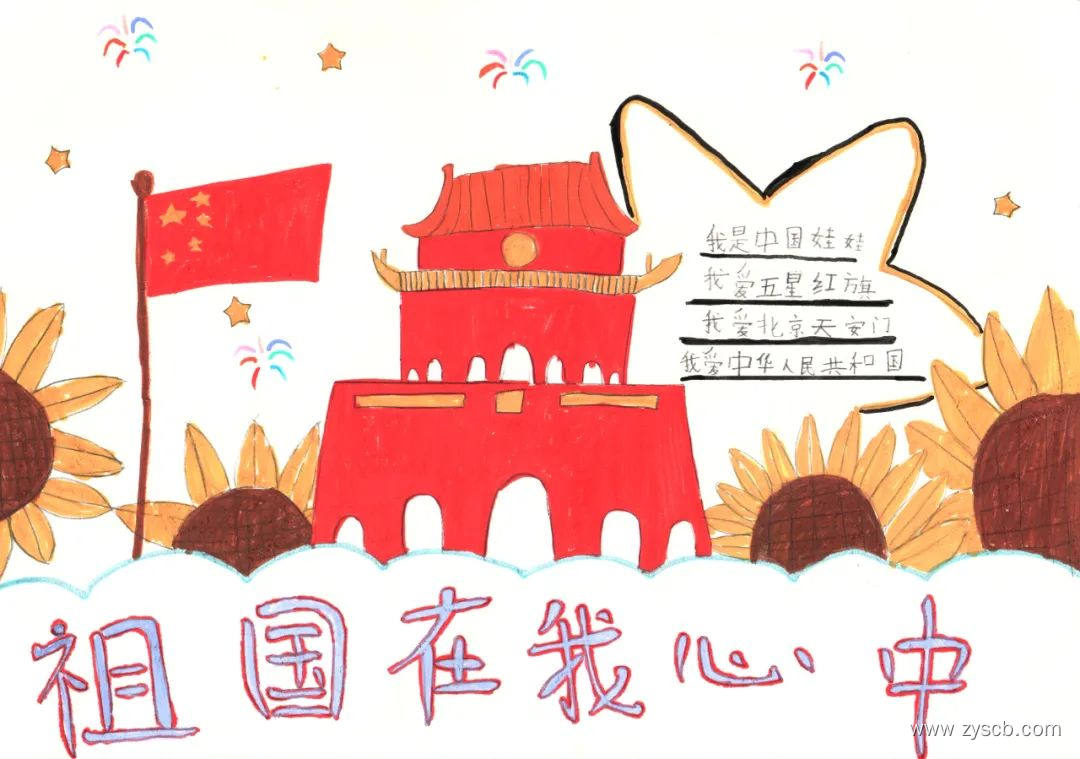 我是中国娃娃
我爱五星红旗
我爱北京天安门
我爱中华人民共和国
祖国在我心中
www.zyscb.com